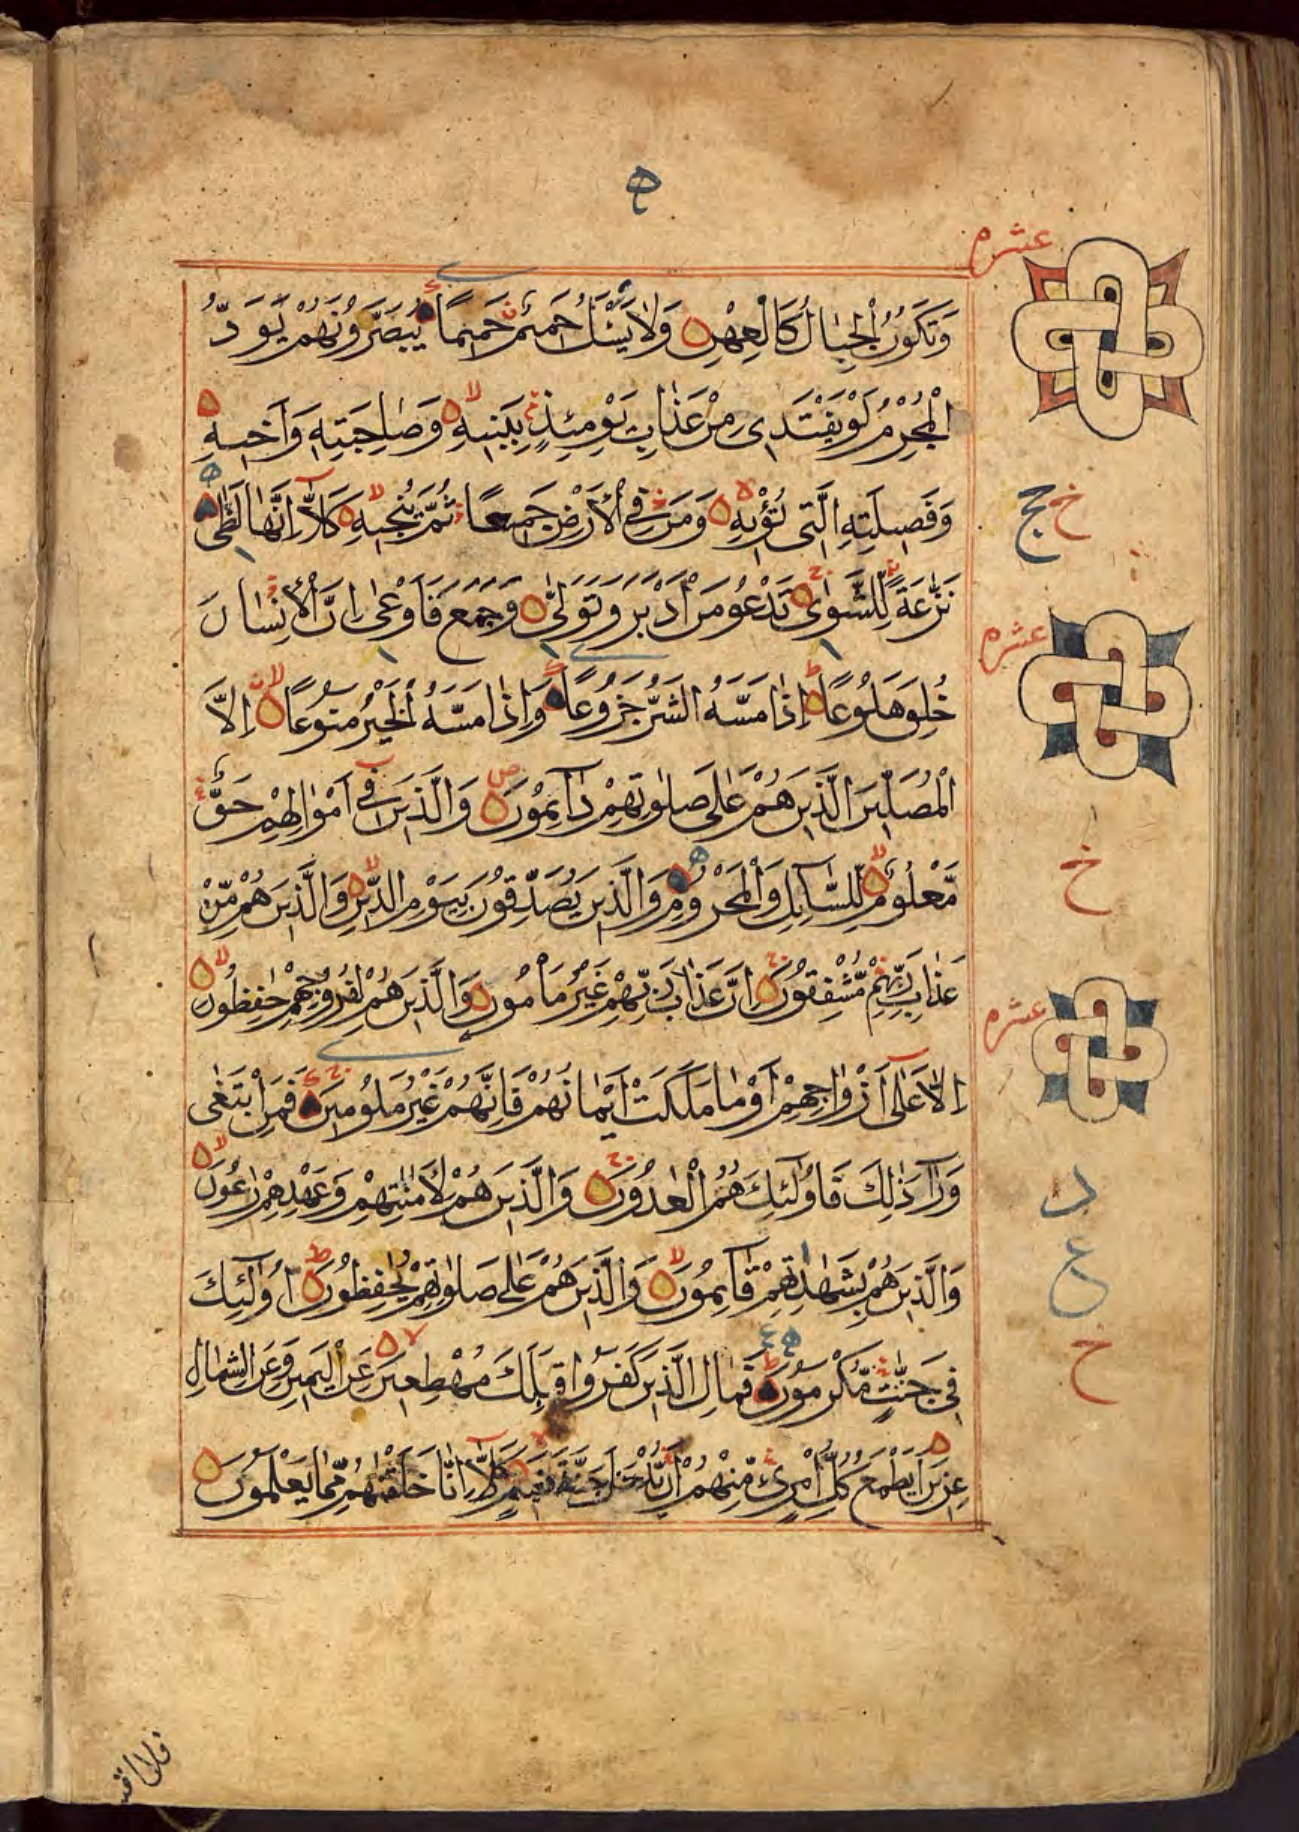 عشرم
وَتَكُونُ الْجِبَالُ كَالْعِهْنِ وَلَا يَسْئَلُ حَمِيمٌ حَمِيمًا يُبَصَّرُونَهُمْ يَوَدُّ
الْمُجْرِمُ لَوْ يَفْتَدِى مِنْ عَذَابِ يَوْمِئِذٍ بِبَنِيهِ وَصَاحِبَتِهِ وَأَخِيهِ
وَفَصِيلَتِهِ الَّتِى تُؤْيهِ وَمَنْ فِى الْأَرْضِ جَمِيعًا ثُمَّ يُنْجِيهِ كَلَّا إِنَّهَا لَظَى
خ ج
نَزَّعَةً لِلشَّوَى تَدْعُو مَنْ أَدْبَرَ وَتَوَلَّى وَجَمَعَ فَأَوْعَى إِنَّ الْإِنْسَانَ
عشرم
خُلِقَ هَلُوعًا إِذَا مَسَّهُ الشَّرُّ جَزُوعًا وَإِذَا مَسَّهُ الْخَيْرُ مَنُوعًا إِلَّا
الْمُصَلِّينَ الَّذِينَ هُمْ عَلَى صَلَوتِهِمْ دَآئِمُونَ وَالَّذِينَ فِى أَمْوَالِهِمْ حَقٌّ
خ
مَّعْلُومٌ لِلسَّآئِلِ وَالْمَحْرُومِ وَالَّذِينَ يُصَدِّقُونَ بِيَوْمِ الدِّينِ وَالَّذِينَ هُمْ مِّنْ
عَذَابِ رَبِّهِمْ مُّشْفِقُونَ إِنَّ عَذَابَ رَبِّهِمْ غَيْرُ مَأْمُونٍ وَالَّذِينَ هُمْ لِفُرُوجِهِمْ حَفِظُونَ
عشرم
إِلَّا عَلَى أَزْوَاجِهِمْ أَوْ مَا مَلَكَتْ أَيْمَانُهُمْ فَإِنَّهُمْ غَيْرُ مَلُومِينَ فَمَنِ ابْتَغَى
وَرَآءَ ذَلِكَ فَأُولَئِكَ هُمُ الْعَادُونَ وَالَّذِينَ هُمْ لِأَمَنَتِهِمْ وَعَهْدِهِمْ رَاعُونَ
وَالَّذِينَ هُمْ بِشَهَدَتِهِمْ قَآئِمُونَ وَالَّذِينَ هُمْ عَلَى صَلَوتِهِمْ يُحَفِظُونَ أُولَئِكَ
ع
فِى جَنَّتٍ مُّكْرَمُونَ فَمَالِ الَّذِينَ كَفَرُوا قِبَلَكَ مُهْطِعِينَ عَنِ الْيَمِينِ وَعَنِ الشِّمَالِ
خ
عِزِينَ أَيَطْمَعُ كُلُّ امْرِئٍ مِّنْهُمْ أَنْ يُّدْخَلَ جَنَّةَ نَعِيمٍ كَلَّا إِنَّا خَلَقْنَهُمْ مِّمَّا يَعْلَمُونَ